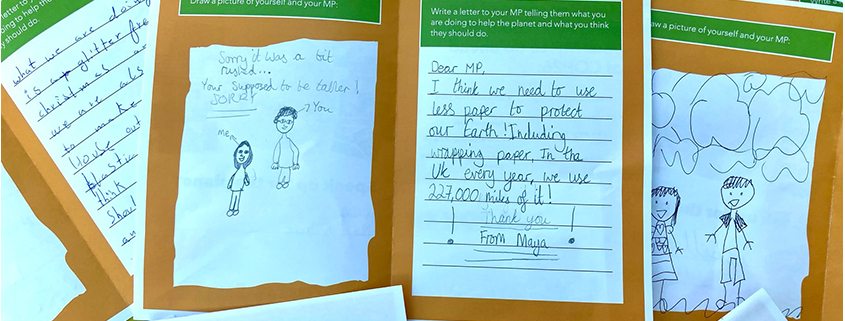 letter to
going to help the
they should do.
what we are doing
is a glitter free
christmas
we are als
to make
out
plastic
think
Shoul
an
Draw a picture of yourself and your MP:
Sorry it was a bit
rushed...
Your supposed to be taller!
SORRY
You
me
Write a letter to your MP telling them what you
are doing to help the planet and what you think
they should do.
Dear MP,
I think we need to use
less paper to protect
our Earth! Including
wrapping paper. In the
Uk every year, we use
227,000 miles of it!
! Thank you !
From Maya
Write
aw a picture of yourself and your MP: